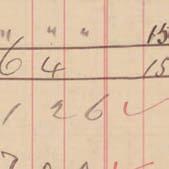 " " " 15
6 4 15
1 26 ✓